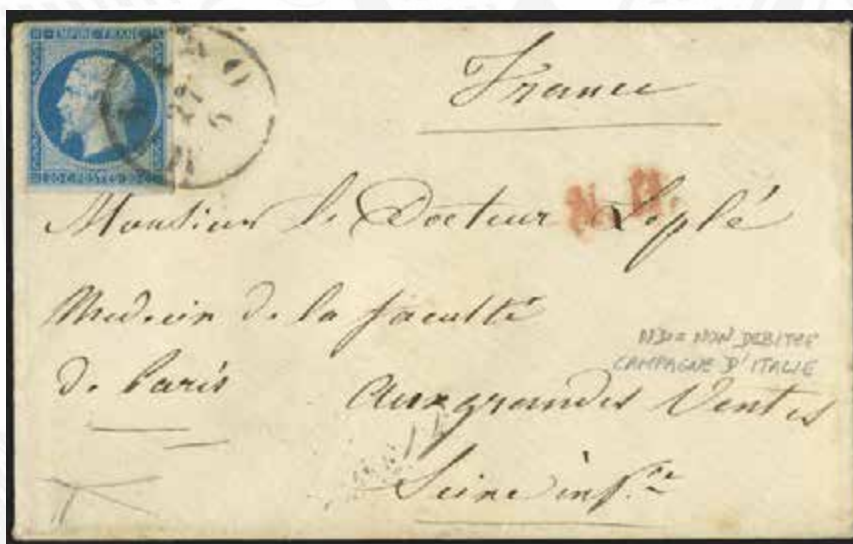 EMPIRE FRANC
20 C. POSTES 20 C.
27
6
France
Monsieur le Docteur Leplé
Medecin de la faculté
de Paris
ND = NON DEBITEE
CAMPAGNE D'ITALIE
Aux grandes Ventes
Seine infre